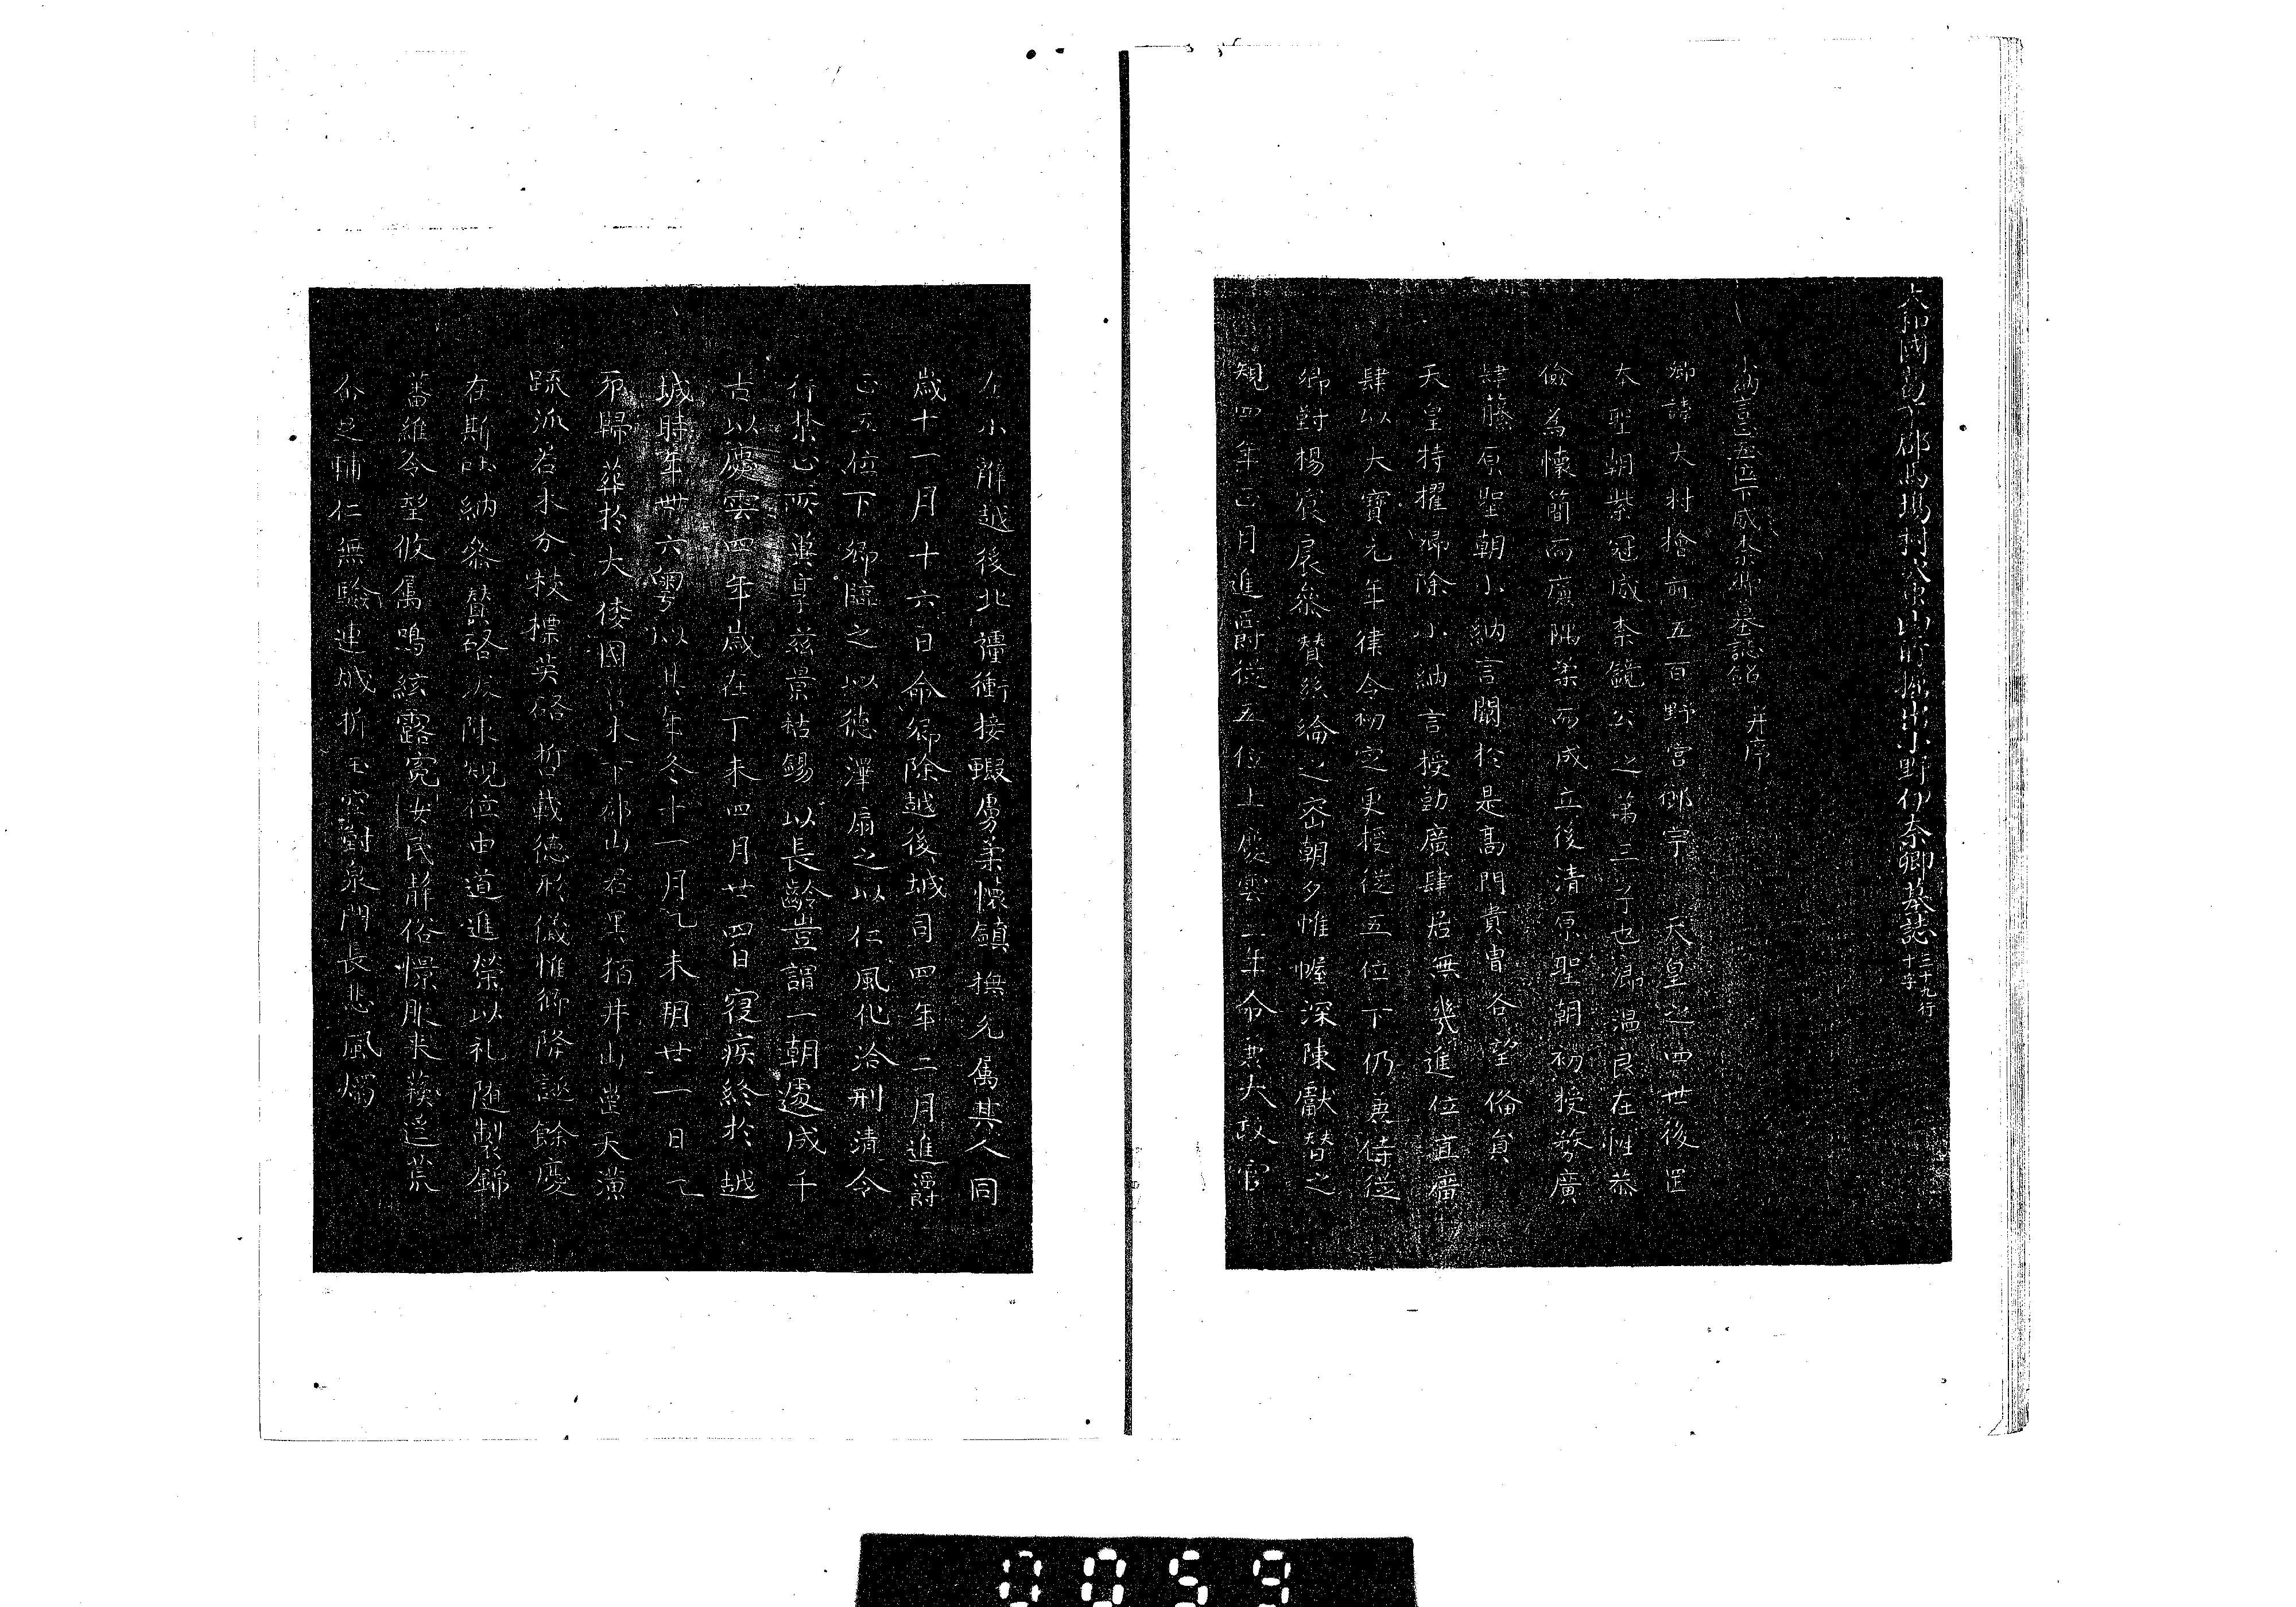 大和國葛下郡馬場村穴虫山所掘出小野伊奈卿墓誌 三十九行
十字
小納言正五位下威奈卿墓誌銘 并序
卿諱大村檜前五百野宮御宇 天皇之四世後罡
本聖朝紫冠威奈鏡公之第三子也卿温良在性恭
儉為懷簡而廉隅柔而成立後清原聖朝初授務廣
肆藤原聖朝小納言闕於是高門貴胄各望備員
天皇特擢卿除小納言授勤廣肆居無幾進位直廣
肆以大寶元年律令初定更授從五位下仍兼侍從
卿對揚宸扆參賛絲綸之密朝夕帷幄深陳獻替之
規四年正月進爵從五位上慶雲二年命兼太政官
左小辨越後北疆衝接蝦虜柔懷鎮撫允属其人同
歳十一月十六日命卿除越後城司四年二月進爵
正五位下卿臨之以德澤扇之以仁風化洽刑清令
行禁止所冀享兹景祜錫以長齡豈謂一朝遽成千
古以慶雲四年歳在丁未四月廿四日寑疾終於越
城時年卌六粵以其年冬十一月乙未朔廿一日乙
夘歸葬於大倭國葛木下郡山君里狛井山崗天潢
疏派若木分枝標英啓哲載德形儀惟卿降誕餘慶
在斯吐納參賛啓沃陳規位由道進榮以礼随製錦
蕃維令望攸属鳴絃露冕安民靜俗憬服来蘇遥荒
企足輔仁無驗連城析玉空對泉門長悲風燭
0059